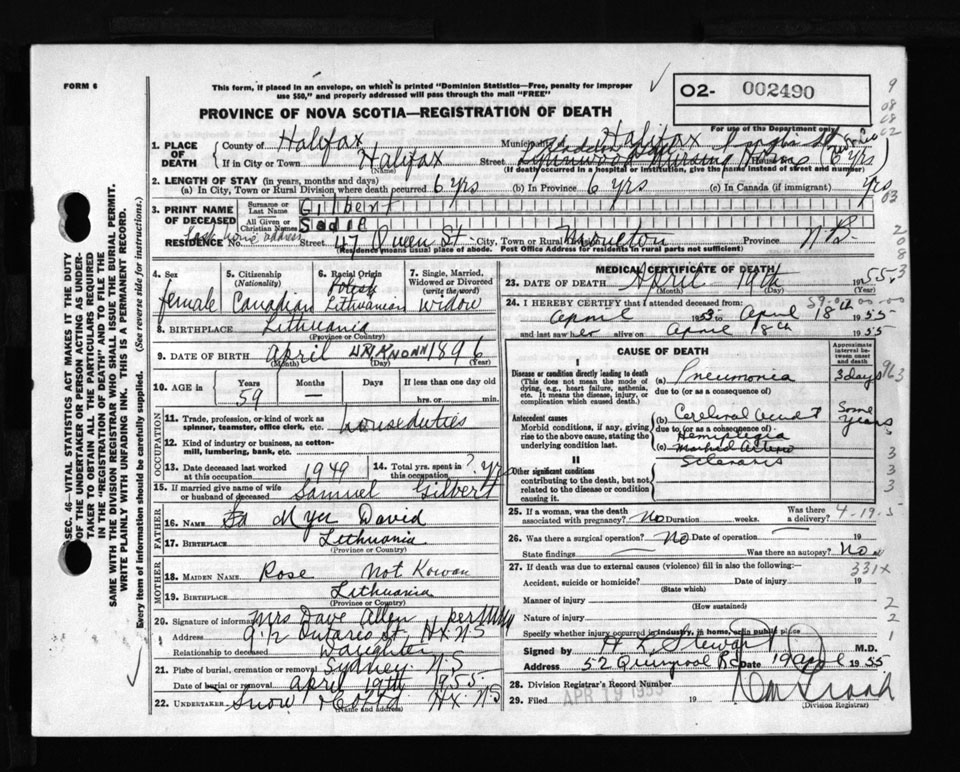 FORM 6
This form, if placed in an envelope, on which is printed "Dominion Statistics—Free, penalty for improper
use $50," and properly addressed will pass through the mail "FREE"
O2- 002490
For use of the Department only
PROVINCE OF NOVA SCOTIA—REGISTRATION OF DEATH
1. PLACE OF DEATH
County of Halifax Halifax
If in City or Town Halifax (Name) Street Nursing Home (6 yrs)
(If death occurred in a hospital or institution, give the name instead of street and number)
2. LENGTH OF STAY (in years, months and days)
(a) In City, Town or Rural Division where death occurred 6 yrs (b) In Province 6 yrs (c) In Canada (if immigrant) yrs
3. PRINT NAME OF DECEASED
Surname or Last Name Gilbert
All Given or Christian Names Sadie
RESIDENCE No. Street 47 Queen St. City, Town or Rural Moncton Province N B.
(Residence means usual place of abode. Post Office Address for residents in rural parts not sufficient)
4. Sex female
5. Citizenship (Nationality) Canadian
6. Racial Origin Polish Lithuanian
7. Single, Married, Widowed or Divorced (write the word) Widow
8. BIRTHPLACE Lithuania
9. DATE OF BIRTH April (Month) UNKNOWN (Day) 1896 (Year)
10. AGE in Years 59 Months — Days If less than one day old hrs. or min.
11. Trade, profession, or kind of work as spinner, teamster, office clerk, etc. houseduties
12. Kind of industry or business, as cotton-mill, lumbering, bank, etc.
13. Date deceased last worked at this occupation 1949
14. Total yrs. spent in this occupation ? yrs
15. If married give name of wife or husband of deceased Samuel Gilbert
FATHER
16. NAME David
17. BIRTHPLACE Lithuania
(Province or Country)
MOTHER
18. MAIDEN NAME Rose Not Known
19. BIRTHPLACE Lithuania
(Province or Country)
20. Signature of informant Mrs Dave Allen per
Address St, HX NS
Relationship to deceased Daughter
21. Place of burial, cremation or removal Sydney N-S
Date of burial or removal April 19th 1955
22. UNDERTAKER Snow HX. NS
(Name and address)
MEDICAL CERTIFICATE OF DEATH
23. DATE OF DEATH April 19th 1955
(Month) (Day) (Year)
24. I HEREBY CERTIFY that I attended deceased from:
April 1953 to April 18th 1955
and last saw her alive on April 18th 1955
CAUSE OF DEATH
Approximate interval between onset and death
I
Disease or condition directly leading to death
(This does not mean the mode of dying, e.g., heart failure, asthenia, etc. It means the disease, injury, or complication which caused death.)
(a) Pneumonia 3 days
due to (or as a consequence of)
Antecedent causes
Morbid conditions, if any, giving rise to the above cause, stating the underlying condition last.
(b) Cerebral Some years
due to (or as a consequence of)
Hemiplegia
(c)
II
Other significant conditions
contributing to the death, but not related to the disease or condition causing it.
25. If a woman, was the death associated with pregnancy? No Duration weeks. Was there a delivery?
26. Was there a surgical operation? No Date of operation 19
State findings Was there an autopsy? No
27. If death was due to external causes (violence) fill in also the following:
331X
Accident, suicide or homicide? Date of injury 19
(State which)
Manner of injury
(How sustained)
Nature of injury
Specify whether injury occurred in industry, in home, or in public place
Signed by H. L. Stewart M.D.
Address 52 Quinpool Rd Date 19 April 1955
28. Division Registrar's Record Number
29. Filed APR 19 1955 19
(Division Registrar)
SEC. 46—VITAL STATISTICS ACT MAKES IT THE DUTY
OF THE UNDERTAKER OR PERSON ACTING AS UNDER-
TAKER TO OBTAIN ALL THE PARTICULARS REQUIRED
IN THE "REGISTRATION OF DEATH" AND TO FILE THE
SAME WITH THE DIVISION REGISTRAR WHO SHALL ISSUE THE BURIAL PERMIT.
WRITE PLAINLY WITH UNFADING INK. THIS IS A PERMANENT RECORD.
Every item of information should be carefully supplied. (See reverse side for instructions.)